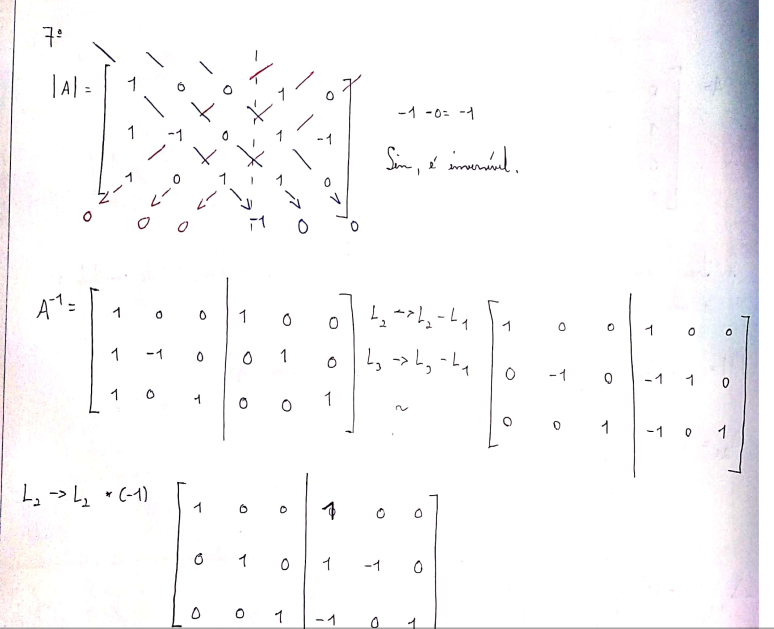 7º
|A| = 1 0 0 1 0
1 -1 0 1 -1
1 0 1 1 0
0 0 0 -1 0 0
-1 -0 = -1
Sim, é inversível.
A⁻¹ = [ 1 0 0 | 1 0 0 ] L₂ -> L₂ - L₁ [ 1 0 0 | 1 0 0 ]
[ 1 -1 0 | 0 1 0 ] L₃ -> L₃ - L₁ [ 0 -1 0 | -1 1 0 ]
[ 1 0 1 | 0 0 1 ] ~ [ 0 0 1 | -1 0 1 ]
L₂ -> L₂ * (-1) [ 1 0 0 | 1 0 0 ]
[ 0 1 0 | 1 -1 0 ]
[ 0 0 1 | -1 0 1 ]